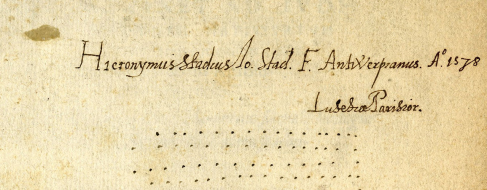 Hieronymus Stadius Jo. Stad. F. Antwerpianus. Aº 1578
Lutetiæ Parisior.